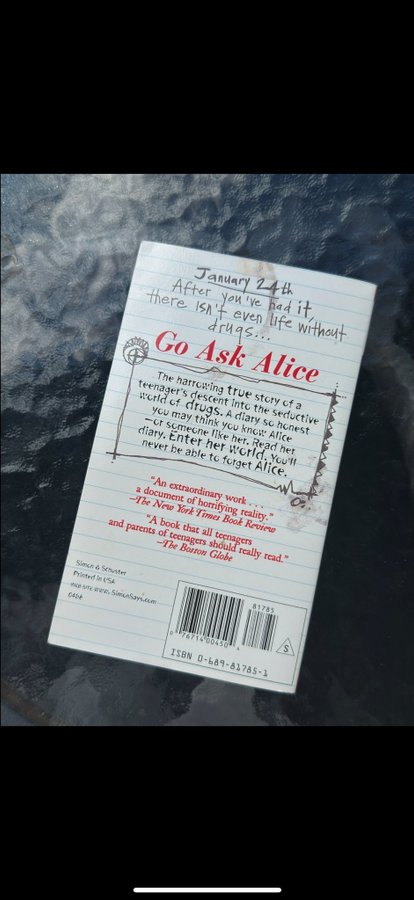 January 24th
After you've had it,
there isn't even life without
drugs...
Go Ask Alice
The harrowing true story of a
teenager's descent into the seductive
world of drugs. A diary so honest
you may think you know Alice
—or someone like her. Read her
diary. Enter her world. You'll
never be able to forget Alice.
"An extraordinary work . . .
a document of horrifying reality."
—The New York Times Book Review
"A book that all teenagers
and parents of teenagers should really read."
—The Boston Globe
Simon & Schuster
Printed in USA
www.SimonSays.com
0404
81785
0 76714 00450 4
S
ISBN 0-689-81785-1